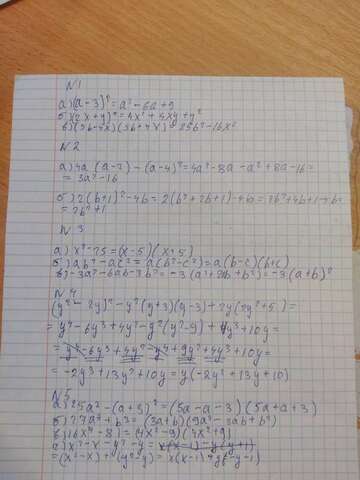 N1
а) (a-3)² = a² - 6a + 9
б) (2x+y)² = 4x² + 4xy + y²
в) (5b-4x)(5b+4x) = 25b² - 16x²
N2
а) 4a(a-2) - (a-4)² = 4a² - 8a - a² + 8a - 16 =
= 3a² - 16
б) 2(b+1)² - 4b = 2(b²+2b+1) - 4b = 2b² + 4b +
= 2b² + 1
N3
а) x² - 25 = (x-5)(x+5)
б) ab² - ac² = a(b²-c²) = a(b-c)(b+c)
в) -3a² - 6ab - 3b² = -3(a²+2ab+b²) = -3(a+b)²
N4
(y² - 2y)² - y²(y+3)(y-3) + 2y(2y²+5) =
= y⁴ - 6y³ + 4y² - y²(y²-9) + 4y³ + 10y =
= y⁴ - 6y³ + 4y² - y⁴ + 9y² + 4y³ + 10y =
= -2y³ + 13y² + 10y = y(-2y² + 13y + 10)
N5
а) 25a² - (a+3)² = (5a-a-3)(5a+a+3)
б) 27a³ + b³ = (3a+b)(9a² - 3ab + b²)
в) 16x⁴ - 81 = (4x²-9)(4x²+9)
г) x² - x - y² - y =
= (x²-x) + (y²-y) = x(x-1)